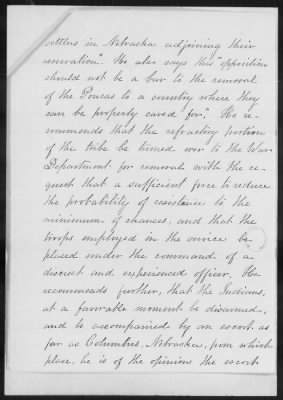 settlers in Nebraska adjoining their
reservation". He also says this "opposition
should not be a bar to the removal
of the Poncas to a country where they
can be properly cared for". He re-
commends that the refractory portion
of the tribe be turned over to the War
Department for removal with the re-
quest that a sufficient force to reduce
the probability of resistance to the
minimum of chances, and that the
troops employed in the service be
placed under the command of a
discreet and experienced officer. He
recommends further, that the Indians,
at a favorable moment be disarmed,
and be accompanied by an escort as
far as Columbus, Nebraska, from which
place, he is of the opinion the escort